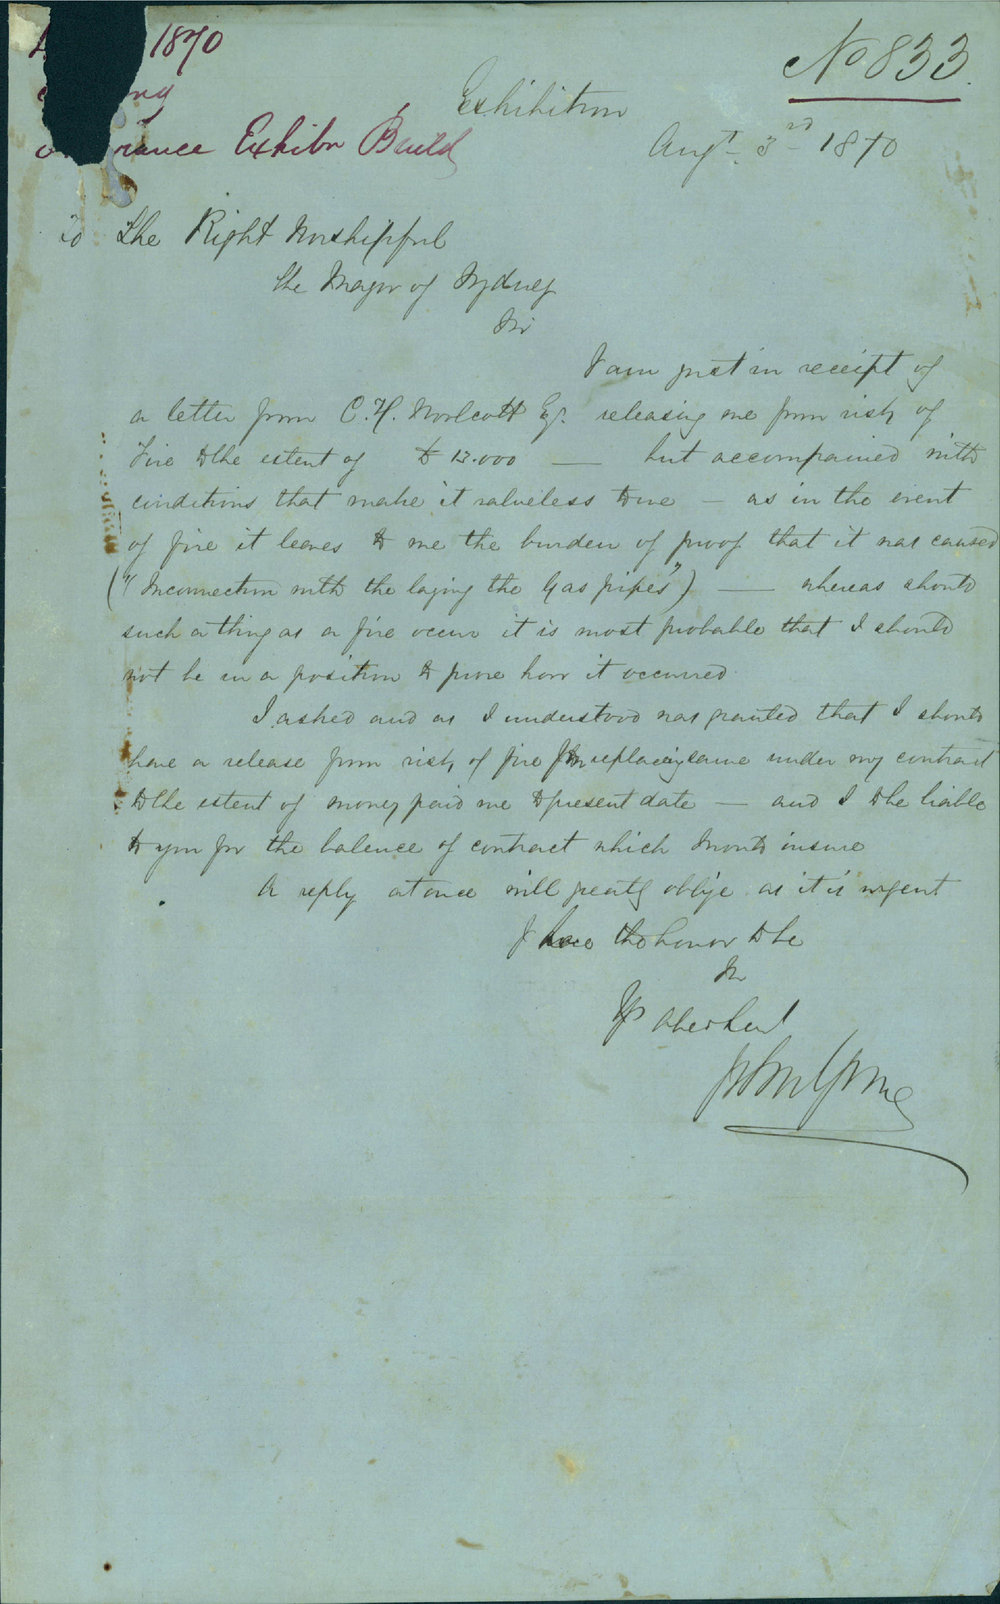 1870
No 833
Exhibition
Exhibn Build
Augt 3rd 1870
To The Right Worshipful
the Mayor of Sydney
Sir
I am just in receipt of
a letter from C. H. Woolcott Esq. releasing me from risk of
Fire to the extent of £13.000 — but accompanied with
conditions that make it valueless to me — as in the event
of fire it leaves to me the burden of proof that it was caused
("Inconnection with the laying the Gas pipes") — whereas should
such a thing as a fire occur it is most probable that I should
not be in a position to prove how it occurred.
I asked and as I understood was granted that I should
have a release from risk of fire for replacing same under my contract
to the extent of money paid me to present date — and I to be liable
to you for the balance of contract which I would insure
A reply at once will greatly oblige as it is urgent
I have the honor to be
Sir
Yr Obedt Servt
John Young